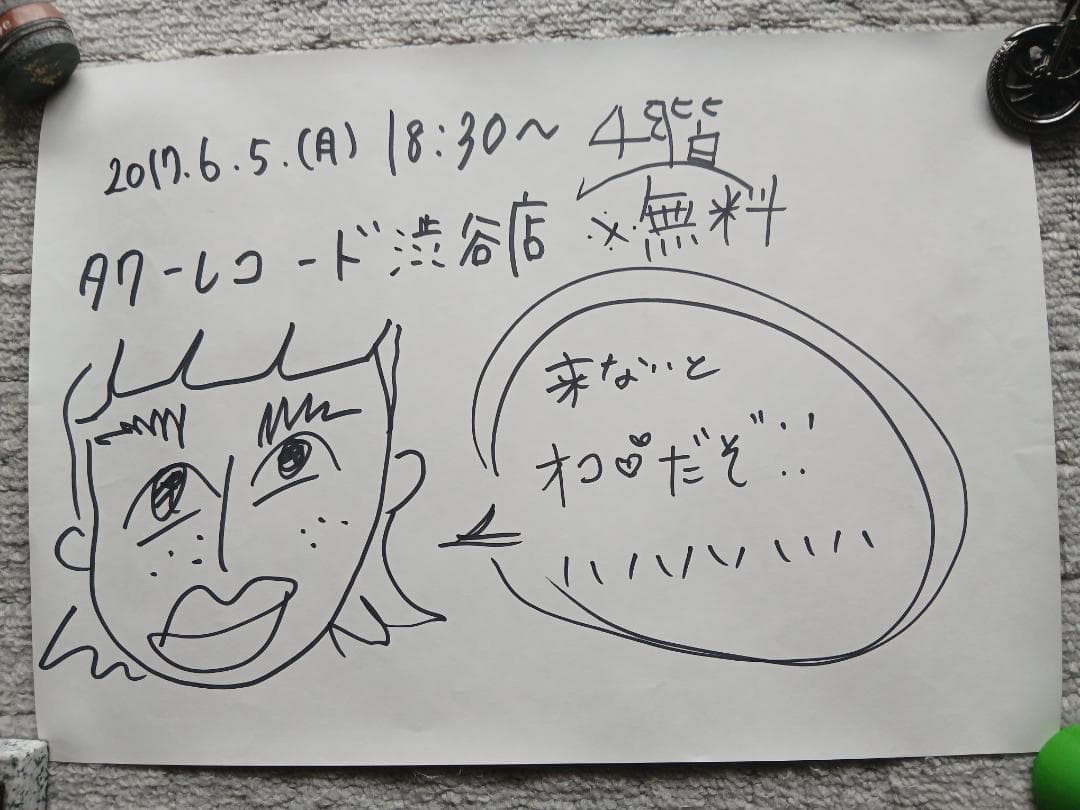 2017.6.5.(月) 18:30〜 4階
タワーレコード渋谷店 ※無料
来ないと
オコ♡だぞ